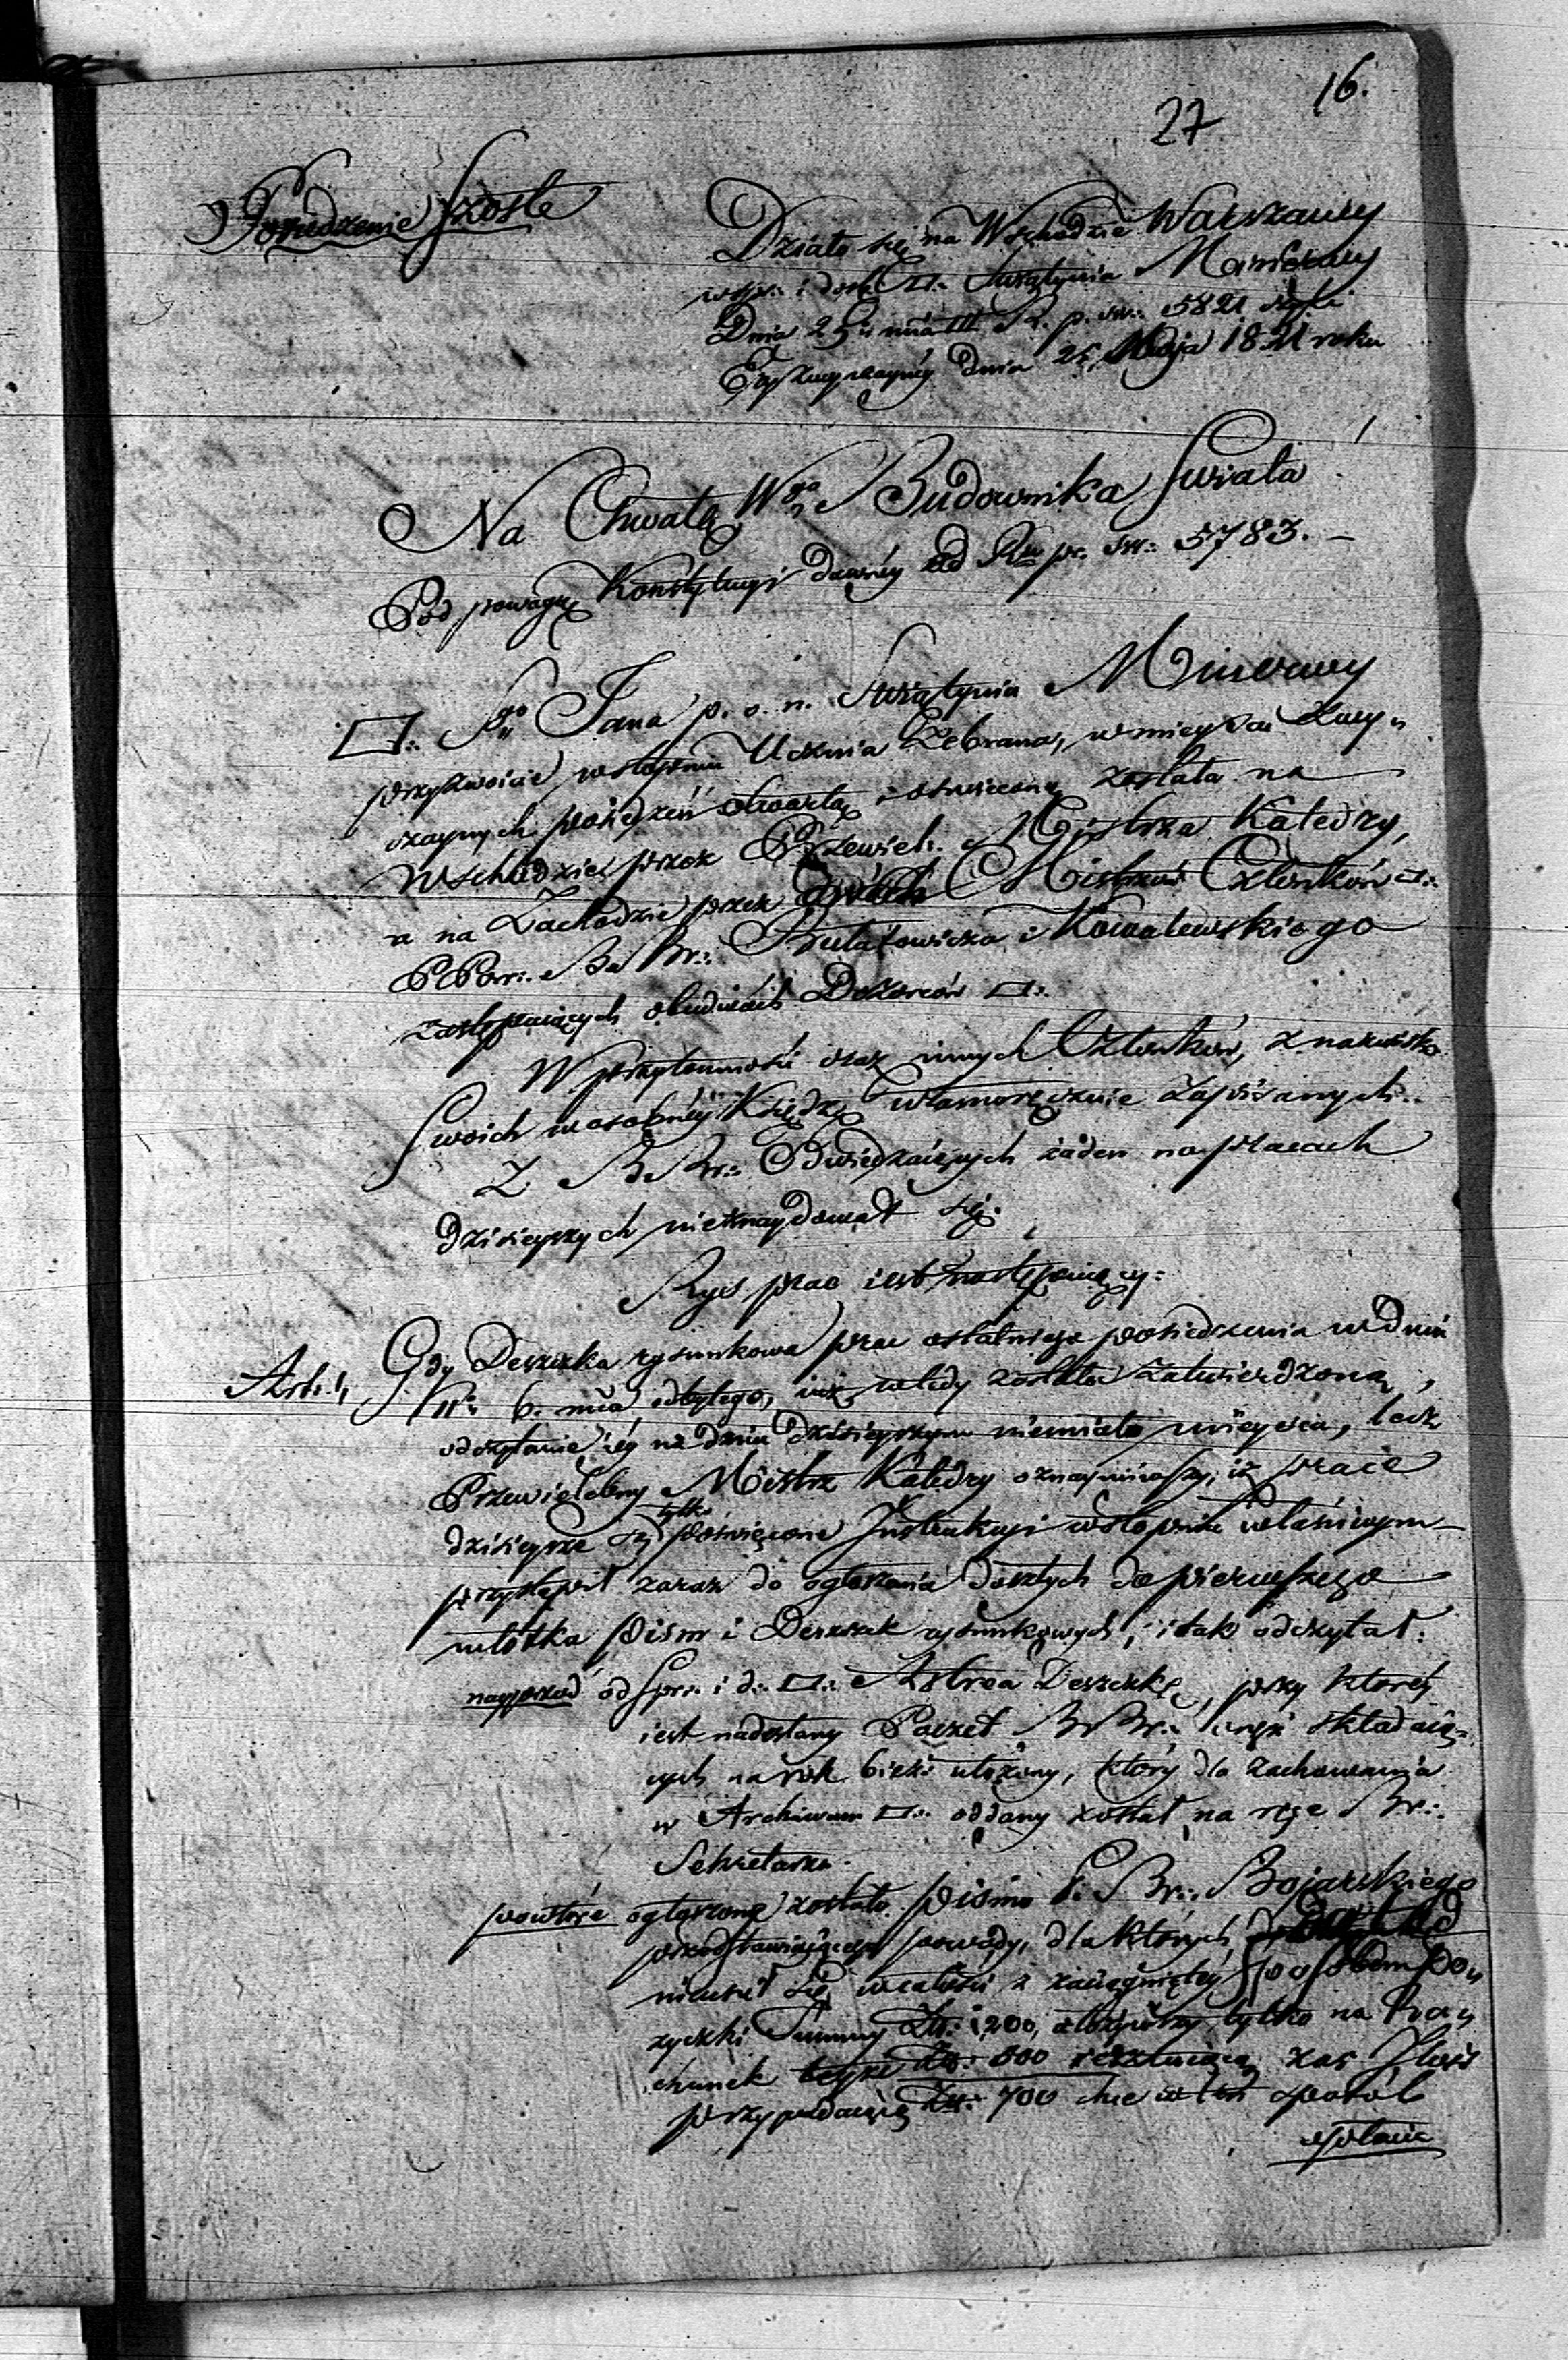 16.
27
Posiedzenie Szoste
Działo się na Wschodzie Warszawy
w spr: i dosk: □: Swiątynia Minerwy
Dnia 25 mca III R. p. sw: 5821 czyli
Dnia 25 Maja 1821 roku
Na Chwałę Wgo Budownika Swiata
Pod powagą Konstytucyi dawney od Ru pr. sw: 5783. –
□: Sgo Jana p. o. n. Swiątynia Minerwy
przyzwoicie w stopniu Ucznia Zebrana, w mieyscu zwy-
czaynych posiedzeń otwartą i oswieconą została na
Wschodzie przez Przewiel: Mistrza Katedry,
a na Zachodzie przez dwóch Mistrzów Członków □:
PPow: BBr: Bułatowicza i Kowalewskiego
zastępuiących obudwóch Dozorców □:
W przytomności oraz innych Członków, z nazwisk
Swoich w osobney Księdze własnoręcznie zapisanych.
Z BBr: Odwiedzaiących żaden na pracach
dzisieyszych nieznaydował się.
Rys prac iest następuiący:
Art: 1, Gdy Deszczka rysunkowa prac ostatniego posiedzenia w dniu
6. mca odbytego, iuż wtedy została zatwierdzoną,
odczytanie iey na dniu dzisieyszym niemiało mieysca, lecz
Przewielebny Mistrz Katedry oznaymiwszy, iż prace
dzisieysze są tylko poświęcone Instrukcyi w stopniu właściwym
przystąpił zaraz do ogłoszenia doszłych do pierwszego
młotka pism i Deszczek rysunkowych, i tak odczytał:
nayprzod od Spr: i d: □: Astrea Deszczkę, przy którey
iest nadesłany Poczet BBr: onęż składaią-
cych na rok bież: ułożony, który dla zachowania
w Archiwum □: oddany został na ręce Br:
Sekretarza.
powtóre ogłoszone zostało pismo Br: Bojarskiego
przedstawiaiącego powody, dla których
niuiścił się w całości z zaciągnięty sposobem po-
życzki Summy Zł: 1200, złożywszy tylko na Ra-
chunek teyże Zł: 500 resztuiącą zaś Ilość
przypadaiącą Zł: 700 chce w ten sposób
spłacić